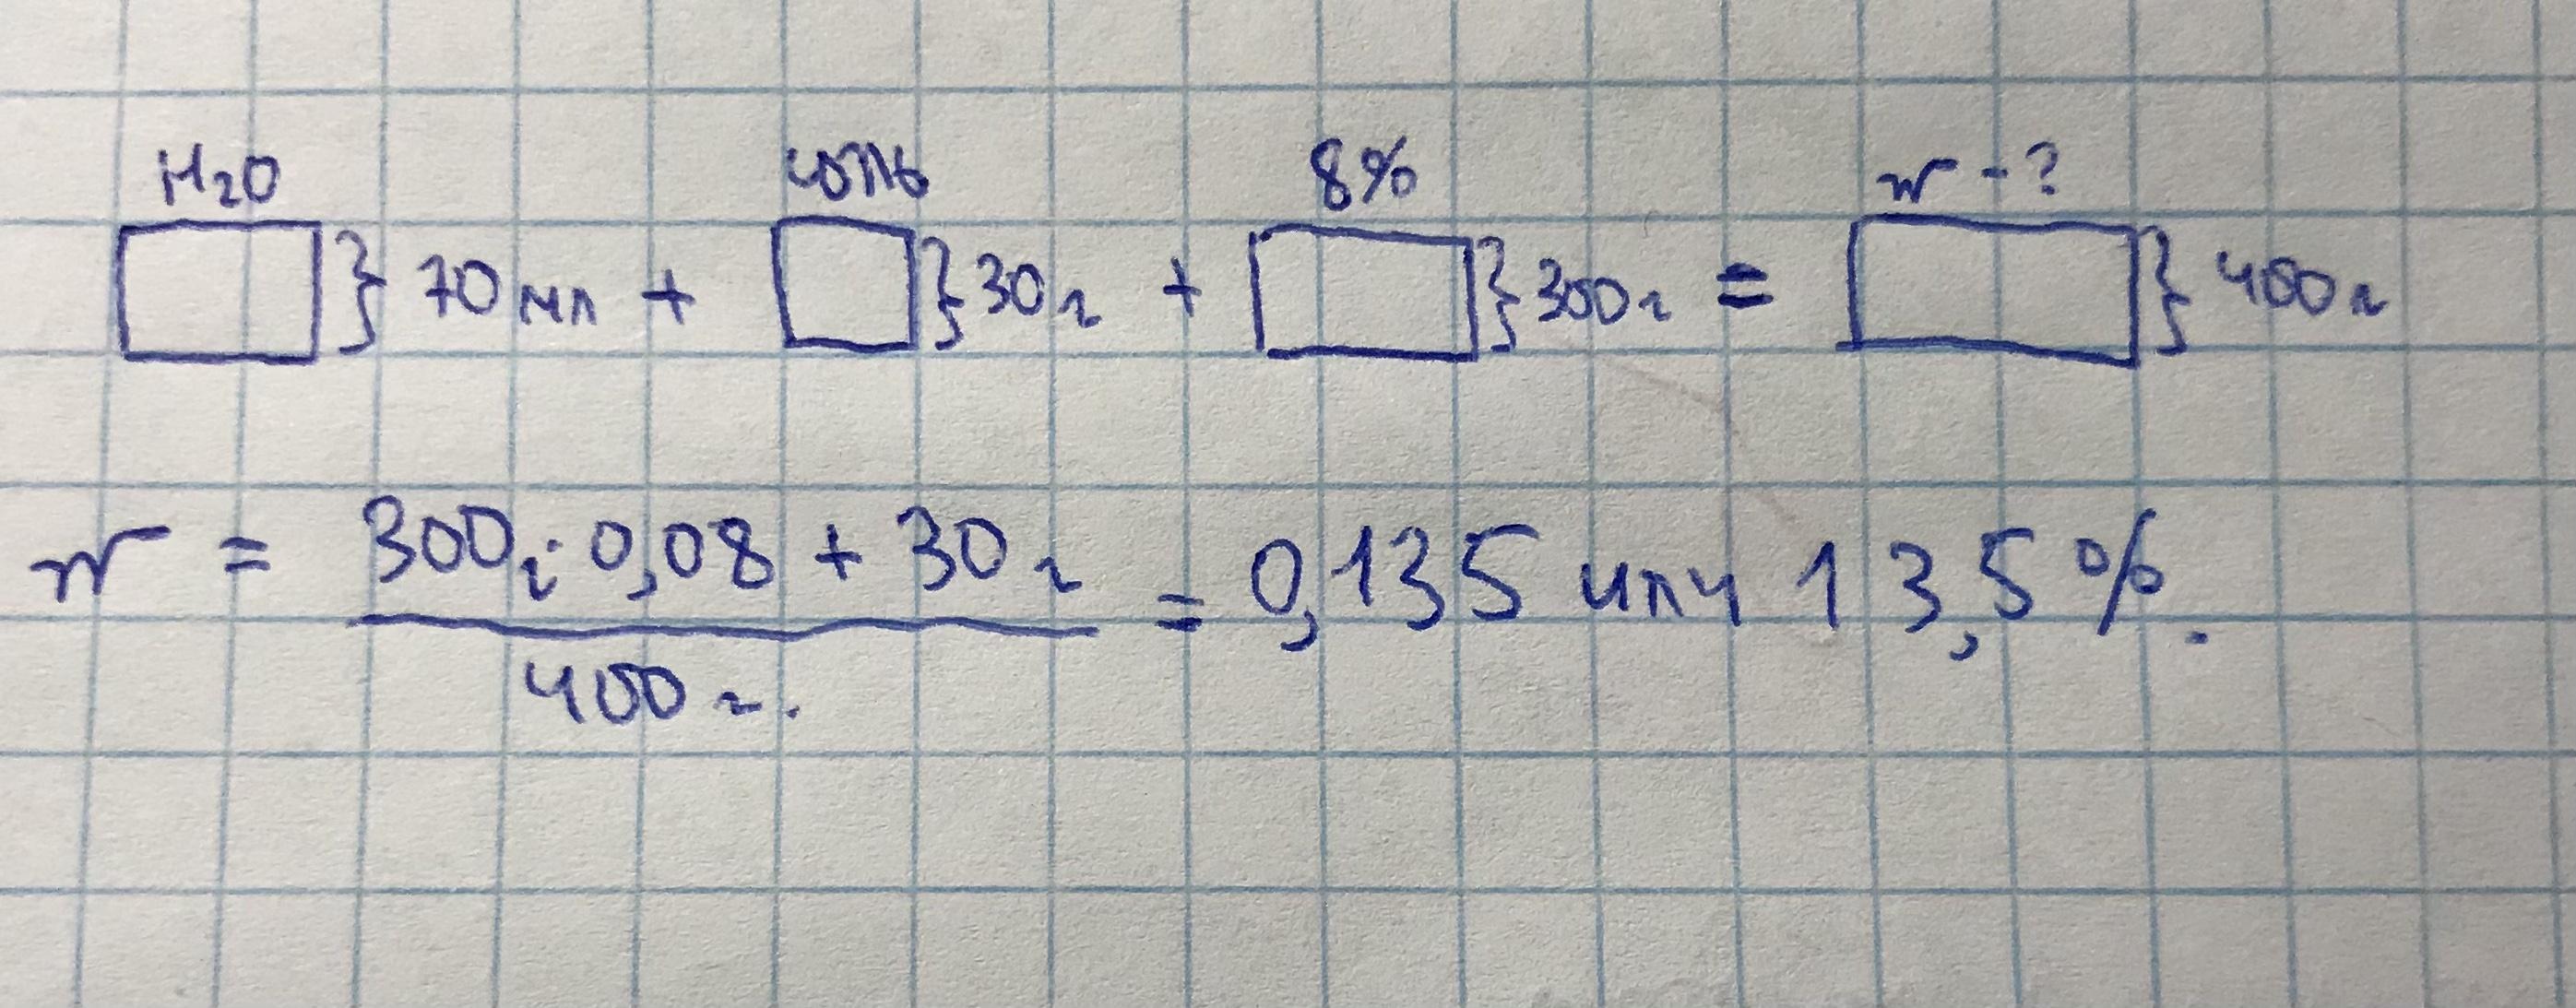 H2O соль 8% w - ?
} 70 мл + } 30 г + } 300 г = } 400 г
w = 300г·0,08 + 30 г = 0,135 или 13,5%.
400 г.